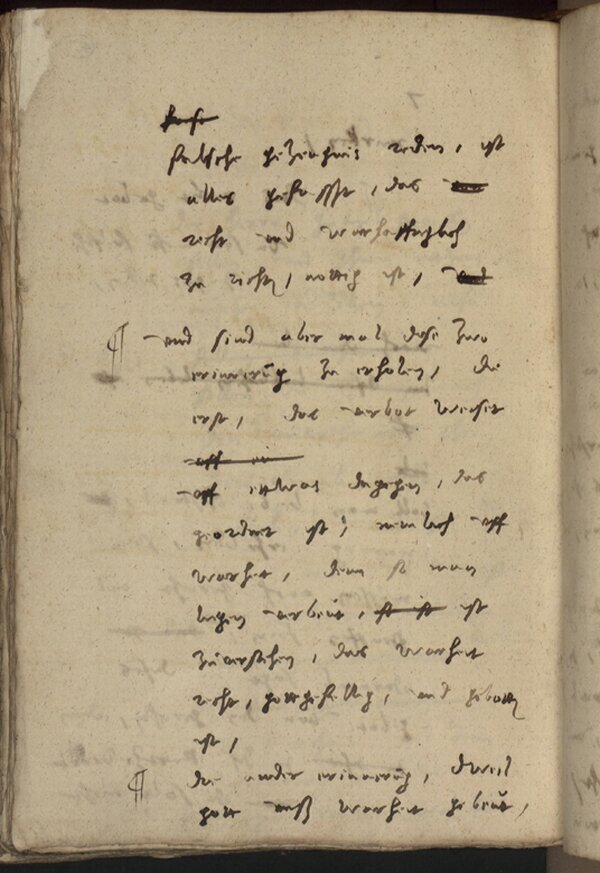 falsche gezeugnis reden, ist
alles gefasst, das
recht und warhafftiglich
zu richten, nottig ist,
¶ und sind aber mal dise zwo
erinnerung zu erholen, die
erst, das verbot weiset
uff etwas dagegen, das
geordnet ist, nemlich uff
warheit, denn so man
liegen verbeut, ist
zuverstehen, das warheit
recht, gottgefellig, und gebotten
ist,
¶ die ander erinnerung, dweil
gott uns warheit gebeut,